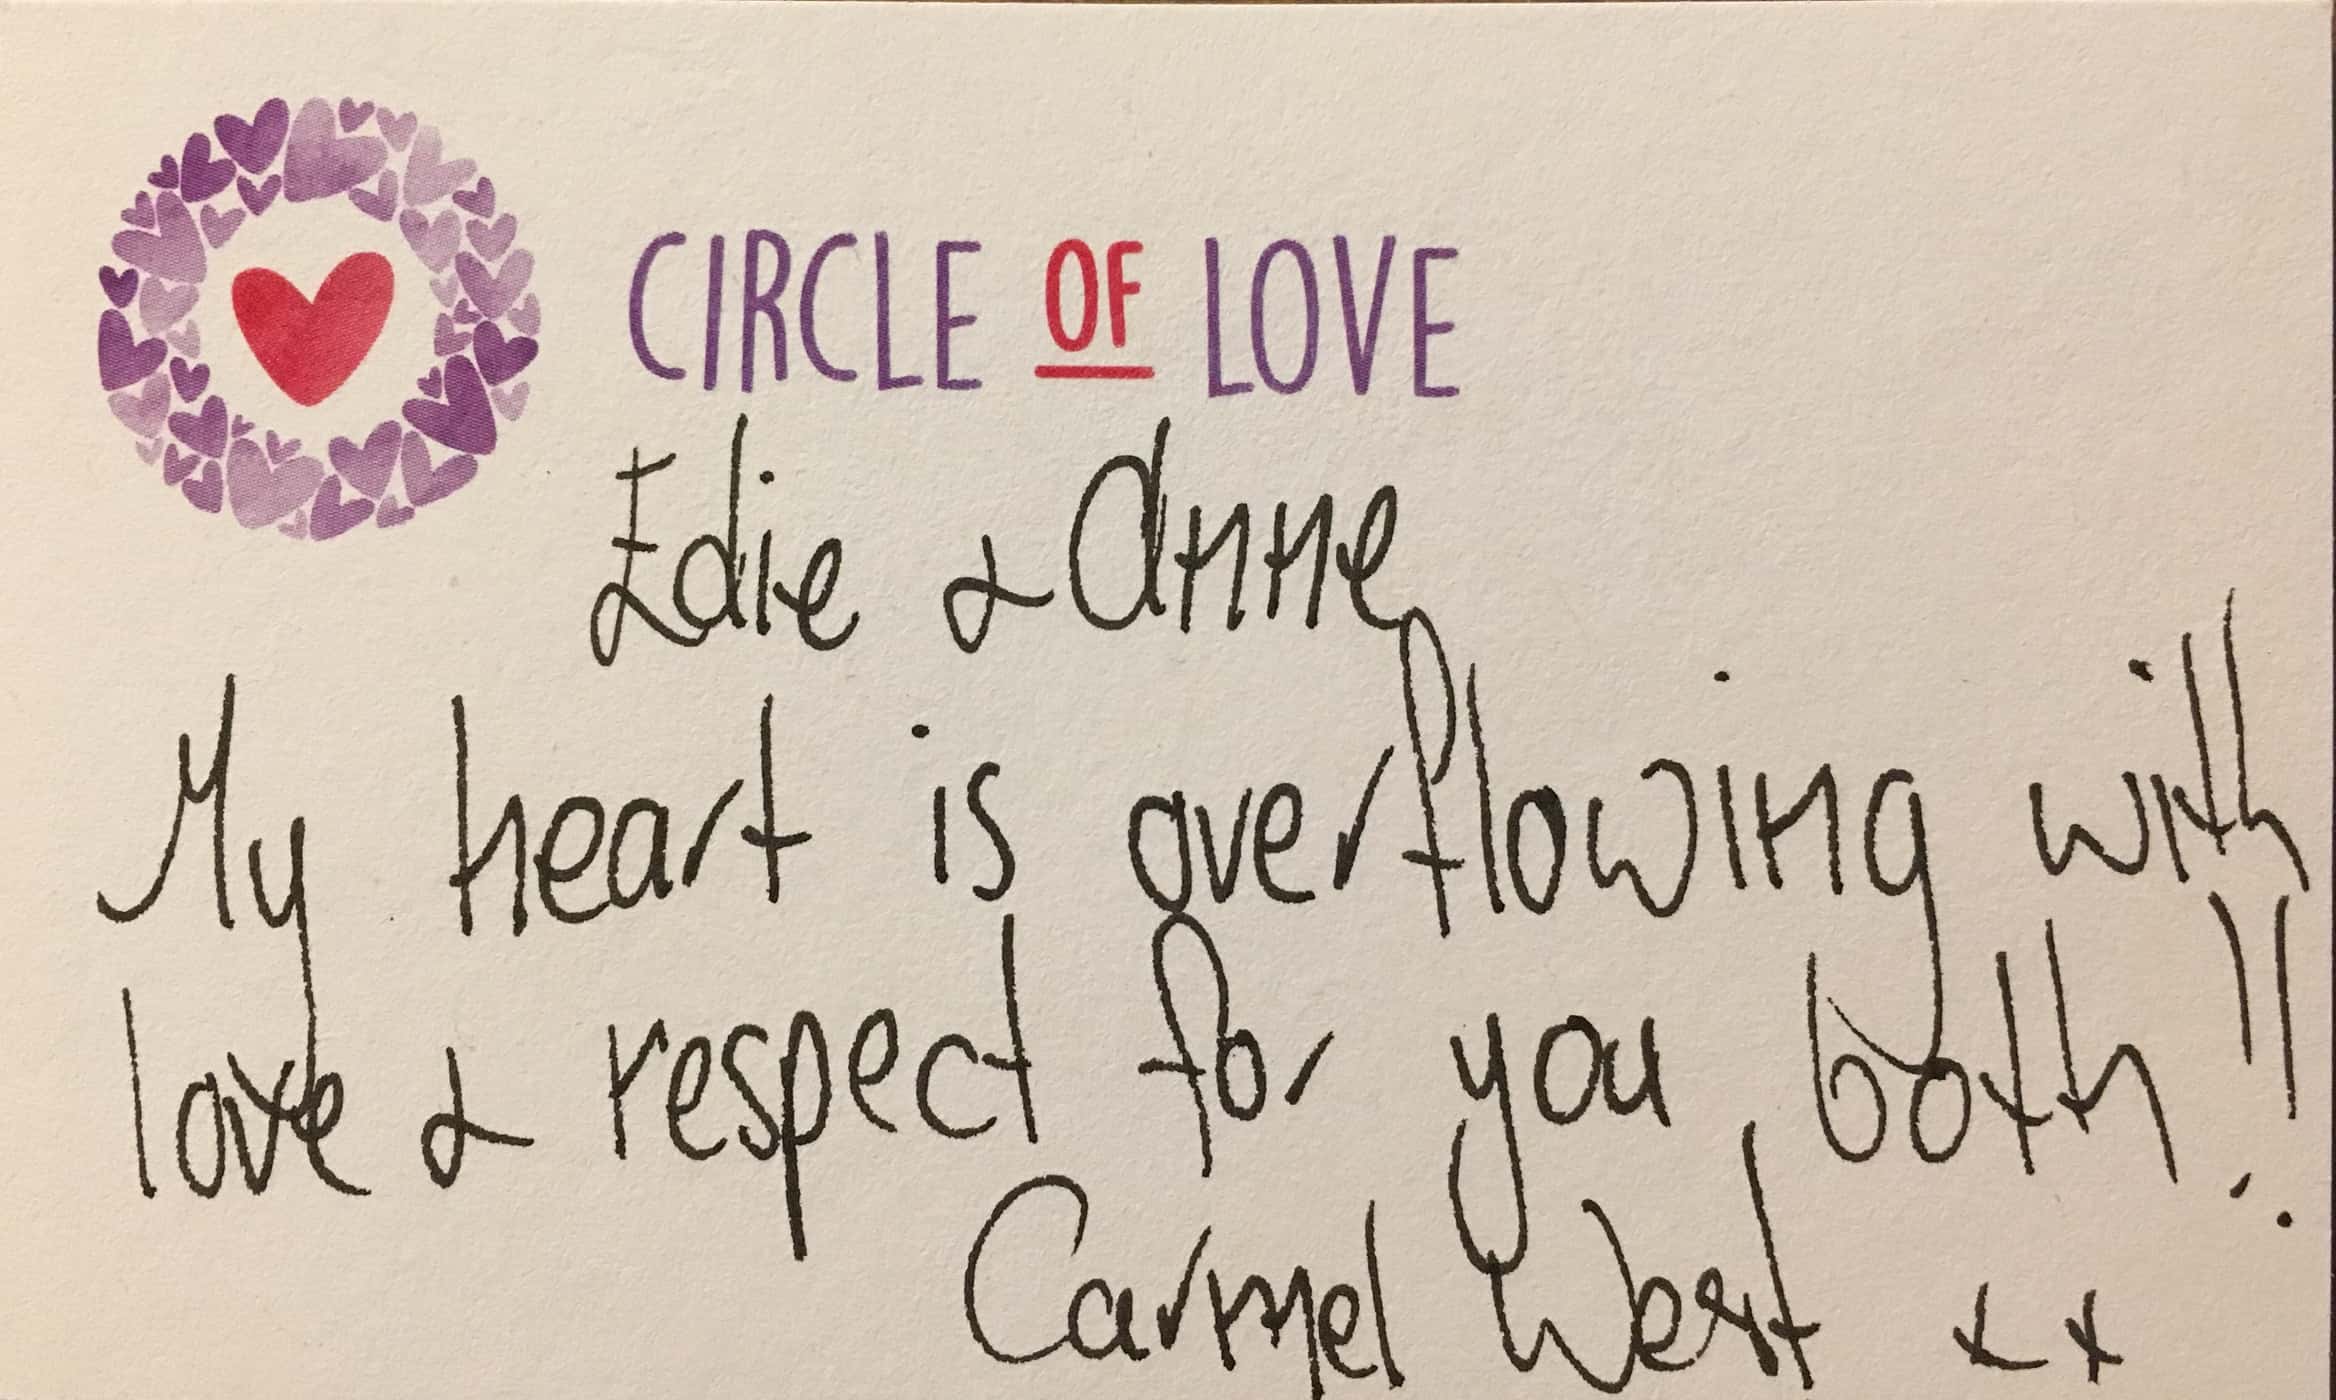 CIRCLE OF LOVE
Edie & Anne
My heart is overflowing with
love & respect for you both!!
Carmel West xx